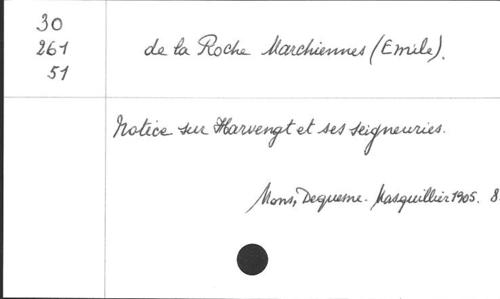 30
261
51
de la Roche Marchiennes (Emile).
Notice sur Harvengt et ses seigneuries.
Mons, Dequesne-Masquillier 1905. 8